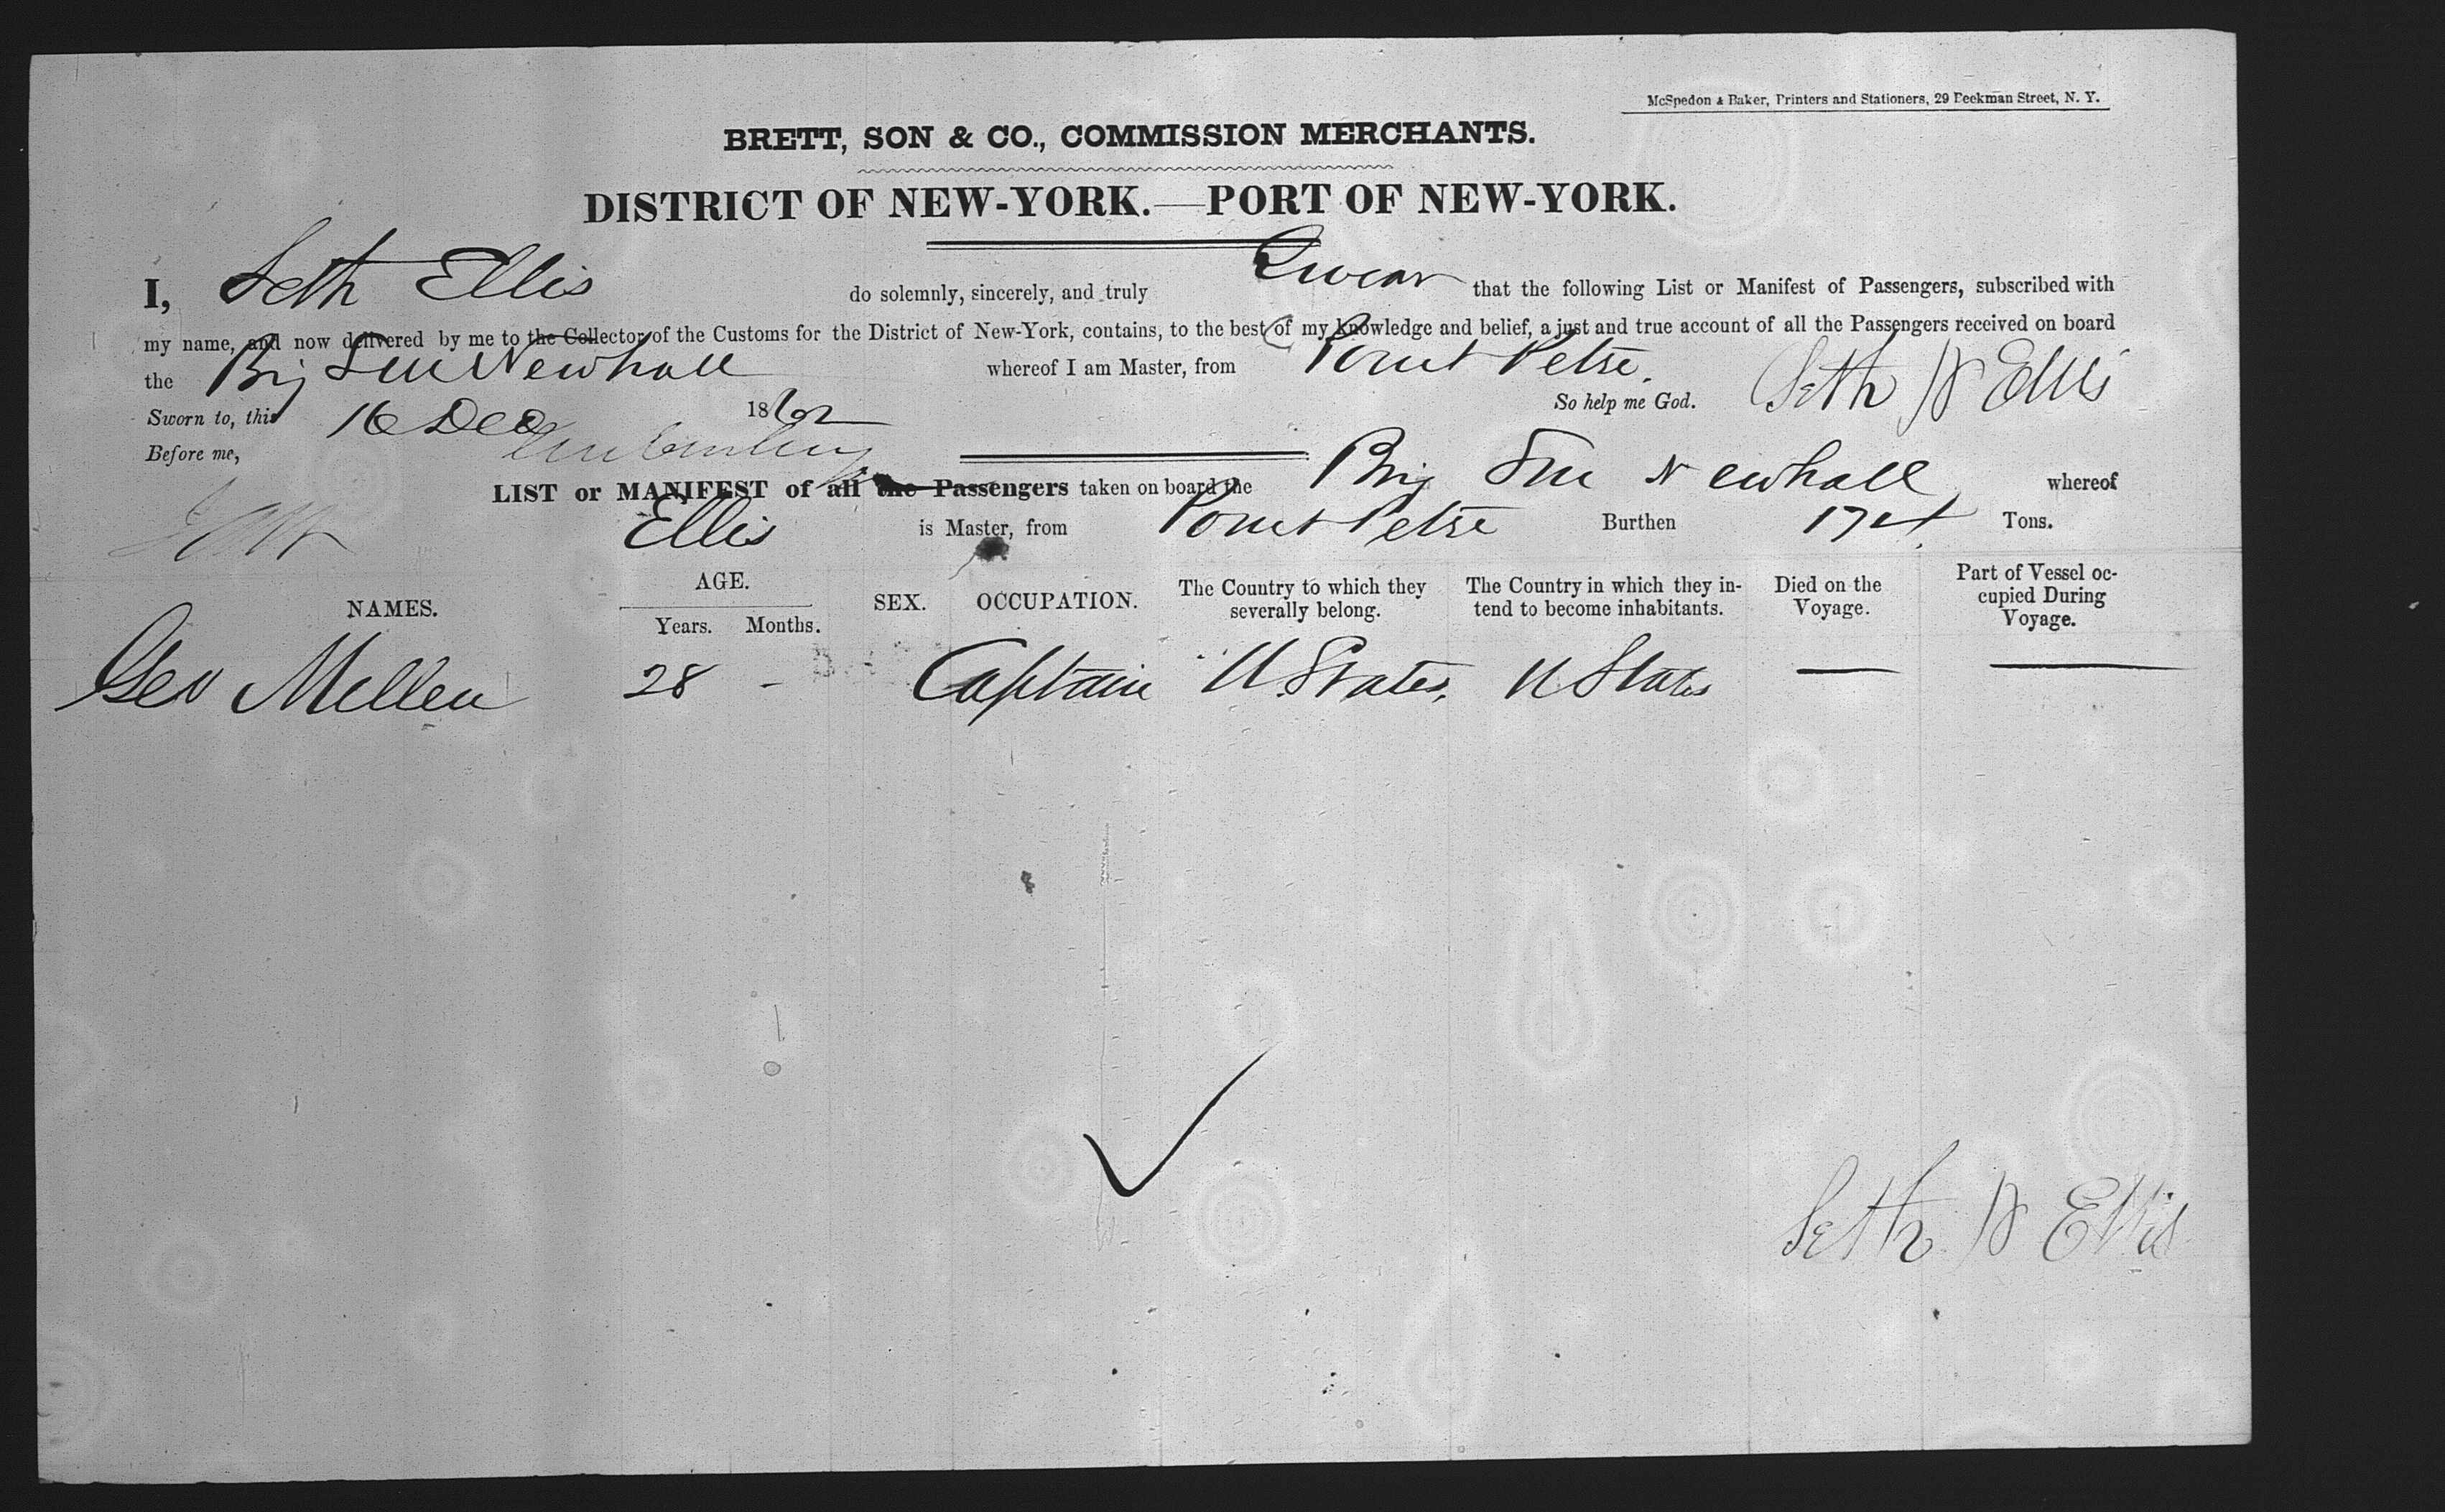 McSpedon & Baker, Printers and Stationers, 29 Beekman Street, N. Y.
BRETT, SON & CO., COMMISSION MERCHANTS.
DISTRICT OF NEW-YORK.—PORT OF NEW-YORK.
I, Seth Ellis do solemnly, sincerely, and truly Swear that the following List or Manifest of Passengers, subscribed with
my name, and now delivered by me to the Collector of the Customs for the District of New-York, contains, to the best of my knowledge and belief, a just and true account of all the Passengers received on board
the Brig Newhall whereof I am Master, from Point Petre.
Sworn to, this 16 Dec 1862 So help me God. Seth Ellis
Before me,
LIST or MANIFEST of all the Passengers taken on board the Brig Newhall whereof
Ellis is Master, from Point Petre Burthen Tons.
NAMES. AGE. Years. Months. SEX. OCCUPATION. The Country to which they severally belong. The Country in which they intend to become inhabitants. Died on the Voyage. Part of Vessel occupied During Voyage.
Geo Mellen 28 - Captain U. States. U States — —
Seth Ellis